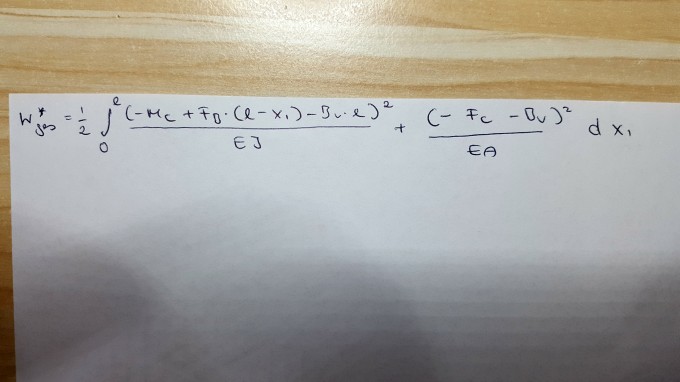 W*ges = 1/2 ∫₀ˡ (-M_C + F_B · (l - x₁) - B_v · l)² / EJ + (- F_C - B_v)² / EA dx₁